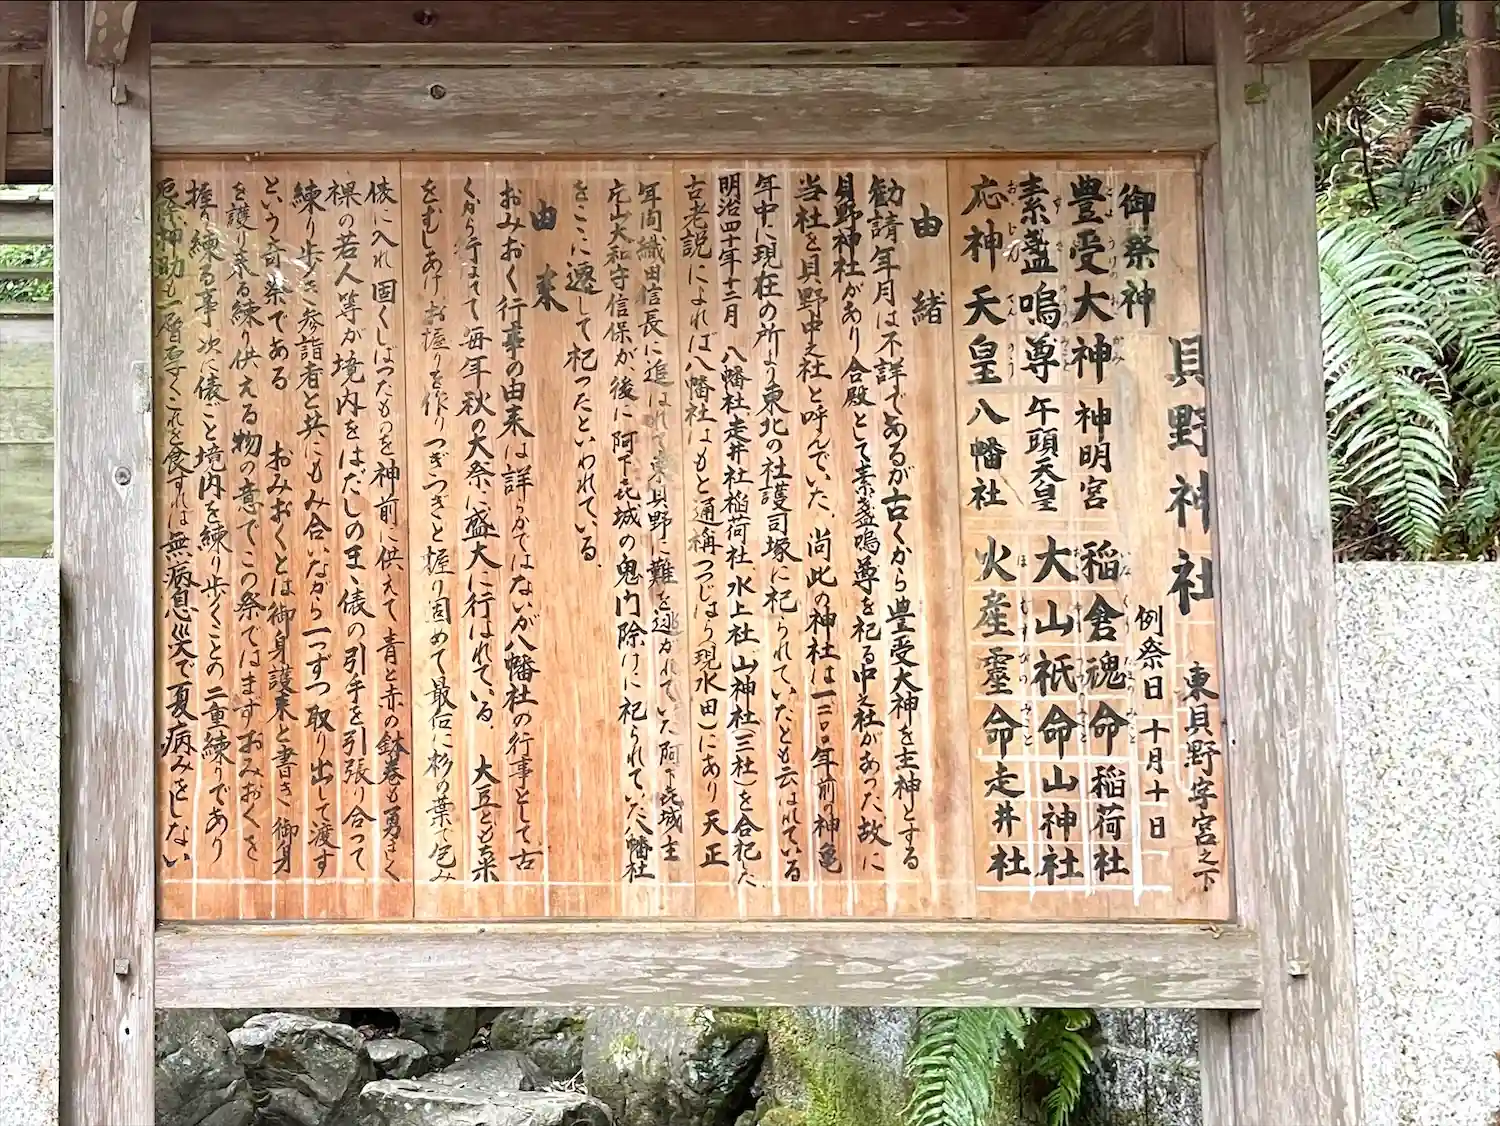 貝野神社 東貝野字宮之下
御祭神 例祭日 十月十日
豊受大神 神明宮 稲倉魂命 稲荷社
素盞嗚尊 午頭天皇 大山祇命 山神社
応神天皇 八幡社 火産霊命 走井社
由緒
勧請年月は不詳であるが古くから豊受大神を主神とする
貝野神社があり合殿として素盞嗚尊を祀る中之社があった、故に
当社を貝野中之社と呼んでいた、尚此の神社は一二〇〇年前の神亀
年中に現在の所より東北の社護司塚に祀られていたとも云はれている
明治四十年十二月 八幡社走井社稲荷社水上社山神社(三社)を合祀した
古老説によれば八幡社はもと通称つじはら(現水田)にあり天正
年間織田信長に追はれて東貝野に難を逃がれていた阿下㐂城主
片山大和守信保が、後に阿下㐂城の鬼門除けに祀られていた八幡社
をここに遷して祀ったといわれている。
由来
おみおく行事の由来は詳らかではないが八幡社の行事として古
くから行はれて毎年秋の大祭に盛大に行はれている。 大豆ともち米
をむしあげお握りを作りつぎつぎと握り固めて最后に杉の葉で包み
俵に入れ固くしばったものを神前に供えて青と赤の鉢巻も勇ましく
裸の若人等が境内をはだしのまゝ俵の引手を引張り合って
練り歩き参詣者と共にもみ合いながら一つずつ取り出して渡す
という奇祭である おみおくとは御身護来と書き御身
を護り来る練り供える物の意でこの祭ではまずおみおくを
握り練る事次に俵ごと境内を練り歩くことの二重練りであり
厄除神助も一層厚くこれを食すれば無病息災で夏病みをしない